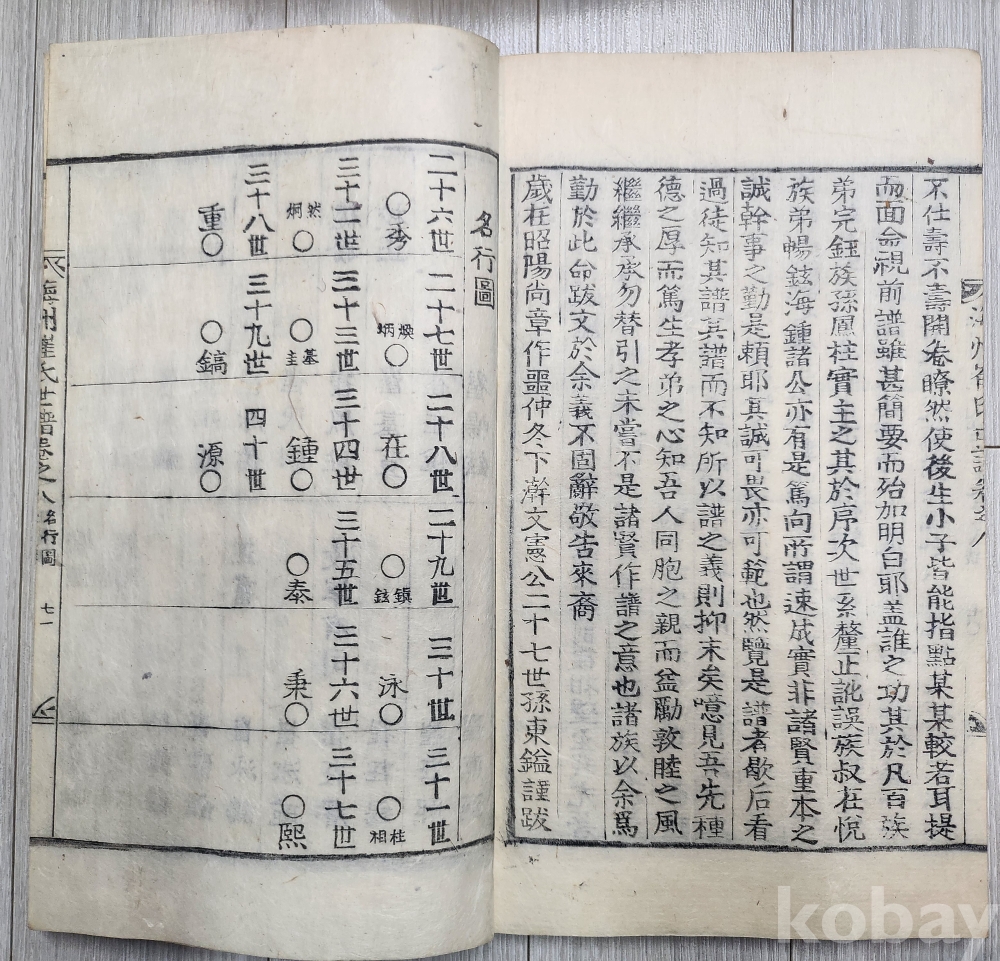 不仕壽不壽開卷瞭然使後生小子皆能指點某某較若耳提
而面命視前譜雖甚簡要而殆加明白耶盖誰之功其於凡百族
弟完鈺族孫鳳柱實主之其於序次世系釐正訛誤族叔在悅
族弟暢鉉海鍾諸公亦有是篤向所謂速成實非諸賢重本之
誠幹事之勤是頼耶其誠可畏亦可範也然覽是譜者歇后看
過徒知其譜其譜而不知所以譜之義則抑末矣噫見吾先種
德之厚而篤生孝弟之心知吾人同胞之親而益勵敦睦之風
繼繼承承勿替引之未嘗不是諸賢作譜之意也諸族以余爲
勤於此命跋文於余義不固辭敬告來裔
歲在昭陽尚章作噩仲冬下澣文憲公二十七世孫東鎰謹跋
名行圖
二十六世 二十七世 二十八世 二十九世 三十世 三十一世
○秀 炳煥○ 在○ ○鉉鎮 泳○ ○相柱
三十二世 三十三世 三十四世 三十五世 三十六世 三十七世
炯然○ ○圭基 鍾○ ○泰 秉○ ○熙
三十八世 三十九世 四十世
重○ ○鎬 源○
海州崔氏世譜卷之八 名行圖 七一
kobay